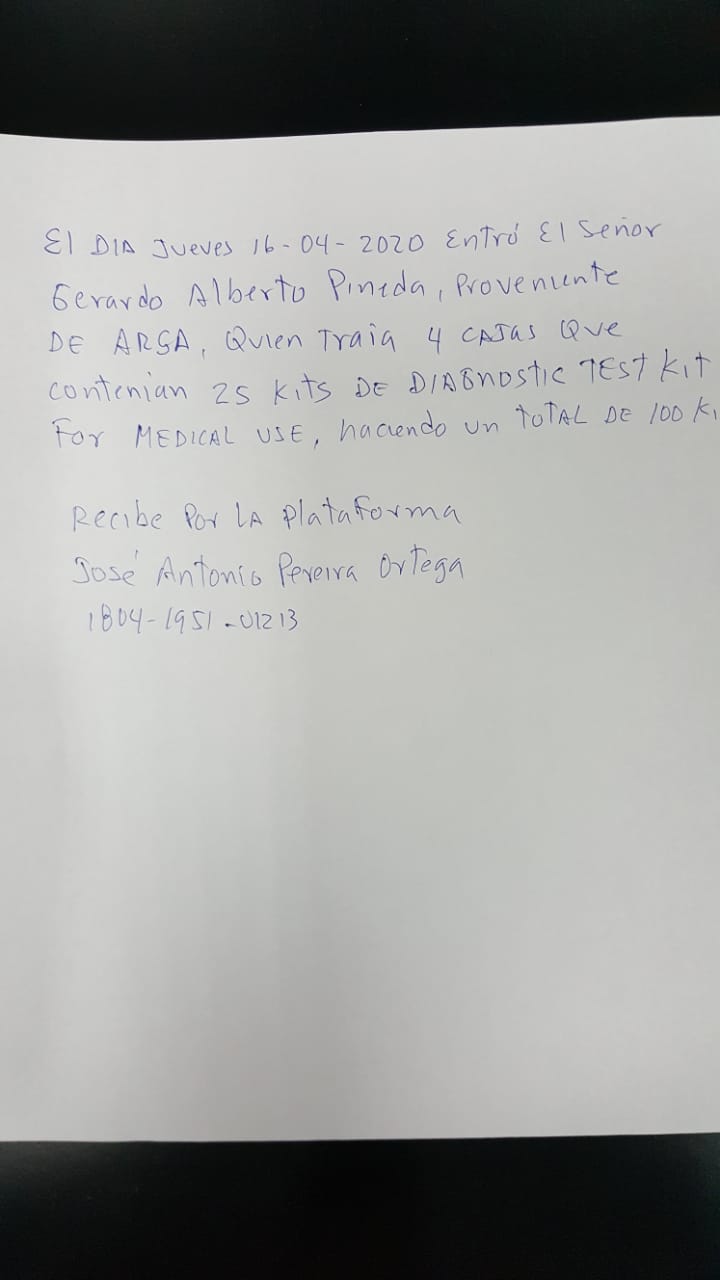 El DIA Jueves 16-04-2020 Entró El Señor
Gerardo Alberto Pineda, Proveniente
DE ARSA, Quien Traia 4 CAJAS Que
contenian 25 Kits DE DIAGNOSTIC TEST KIT
For MEDICAL USE, haciendo un TOTAL DE 100 Ki
Recibe Por LA Plataforma
José Antonio Pereira Ortega
1804-1951-01213